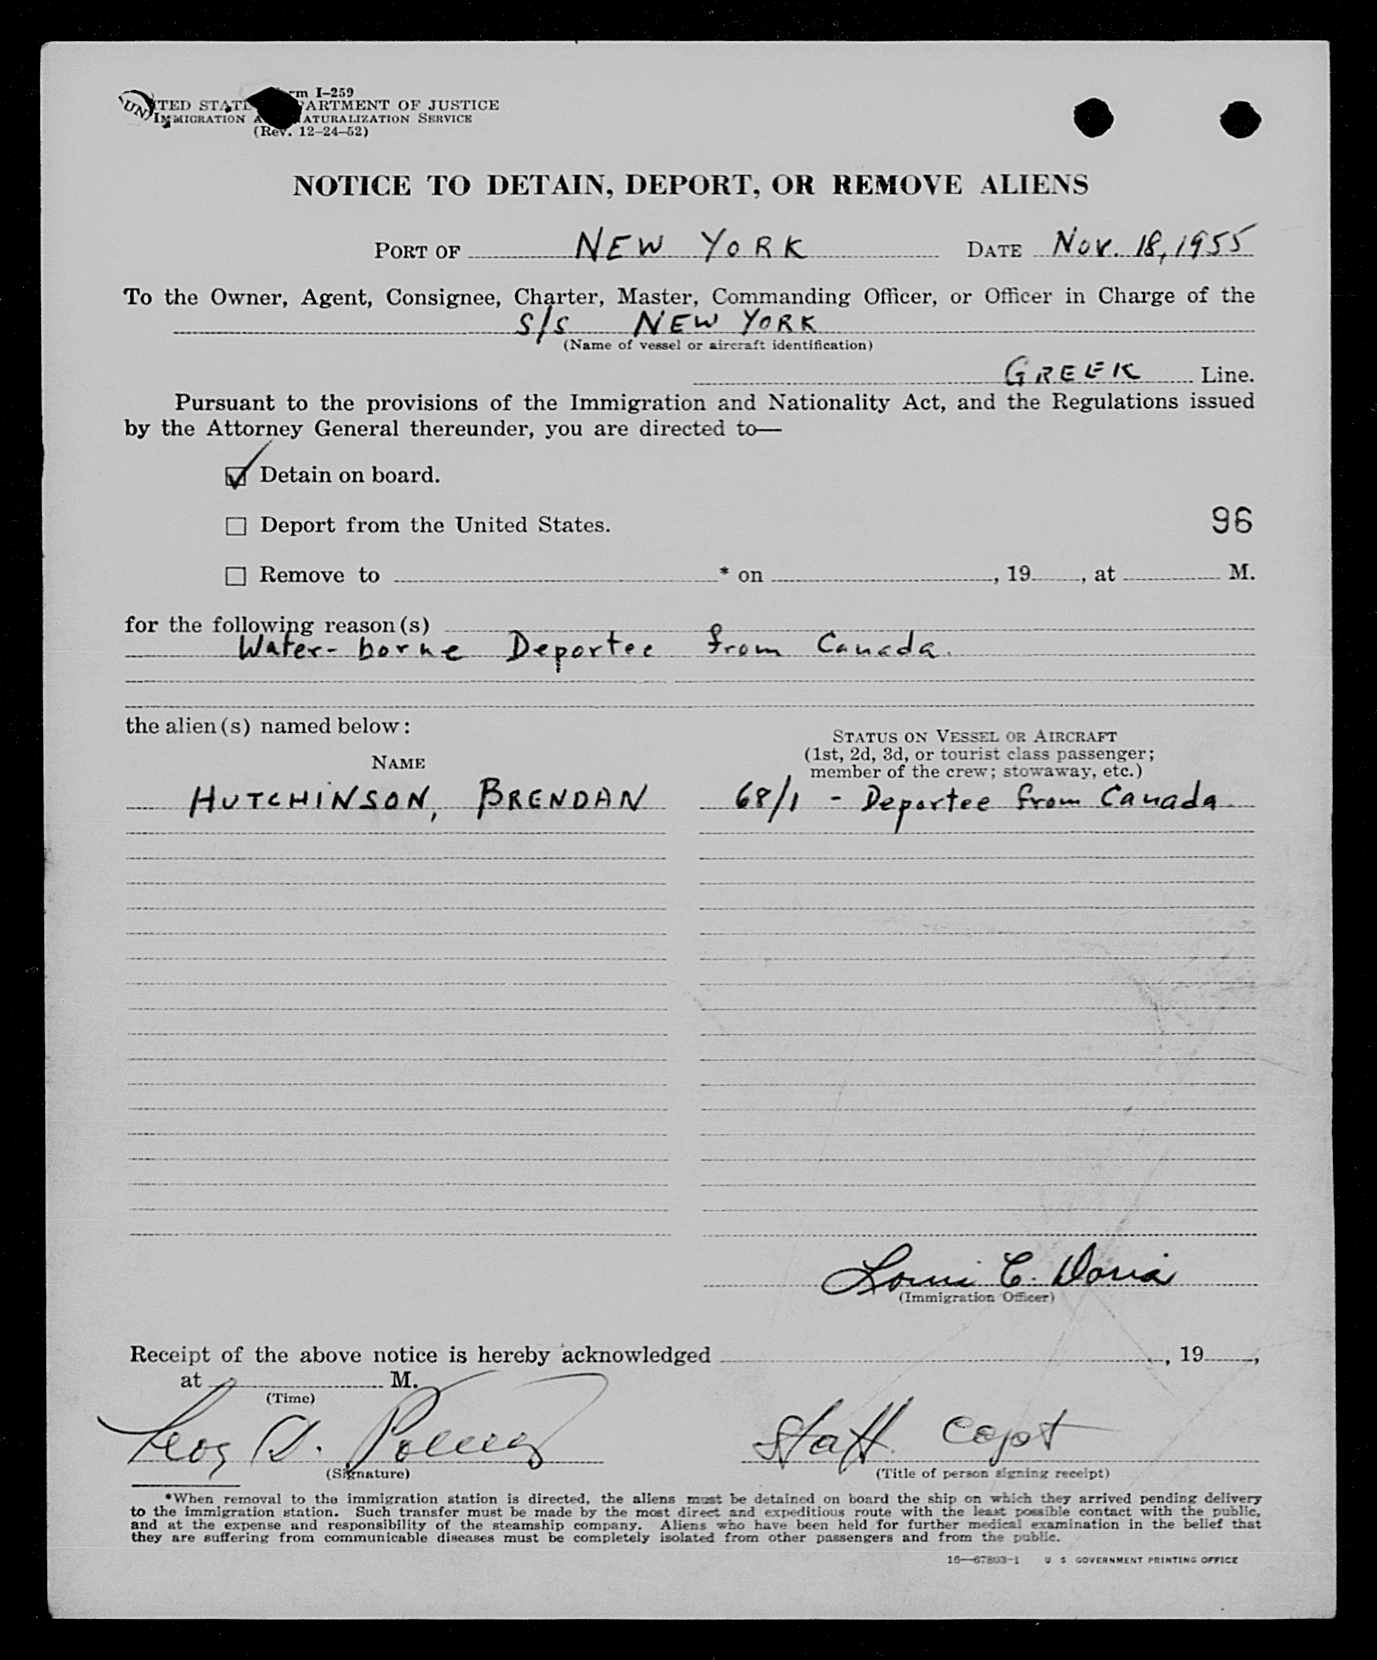 Form I-259
UNITED STATES DEPARTMENT OF JUSTICE
IMMIGRATION AND NATURALIZATION SERVICE
(Rev. 12-24-52)
NOTICE TO DETAIN, DEPORT, OR REMOVE ALIENS
PORT OF NEW YORK DATE Nov. 18, 1955
To the Owner, Agent, Consignee, Charter, Master, Commanding Officer, or Officer in Charge of the
S/S NEW YORK
(Name of vessel or aircraft identification)
GREEK Line.
Pursuant to the provisions of the Immigration and Nationality Act, and the Regulations issued
by the Attorney General thereunder, you are directed to—
Detain on board.
Deport from the United States. 96
Remove to * on , 19 , at M.
for the following reason(s)
Water-borne Deportee from Canada.
the alien(s) named below:
NAME
STATUS ON VESSEL OR AIRCRAFT
(1st, 2d, 3d, or tourist class passenger;
member of the crew; stowaway, etc.)
HUTCHINSON, BRENDAN 68/1 - Deportee from Canada.
Louis C. Doria
(Immigration Officer)
Receipt of the above notice is hereby acknowledged , 19 ,
at M.
(Time)
D. Staff Capt
(Signature) (Title of person signing receipt)
*When removal to the immigration station is directed, the aliens must be detained on board the ship on which they arrived pending delivery
to the immigration station. Such transfer must be made by the most direct and expeditious route with the least possible contact with the public,
and at the expense and responsibility of the steamship company. Aliens who have been held for further medical examination in the belief that
they are suffering from communicable diseases must be completely isolated from other passengers and from the public.
16—67803-1 U S GOVERNMENT PRINTING OFFICE